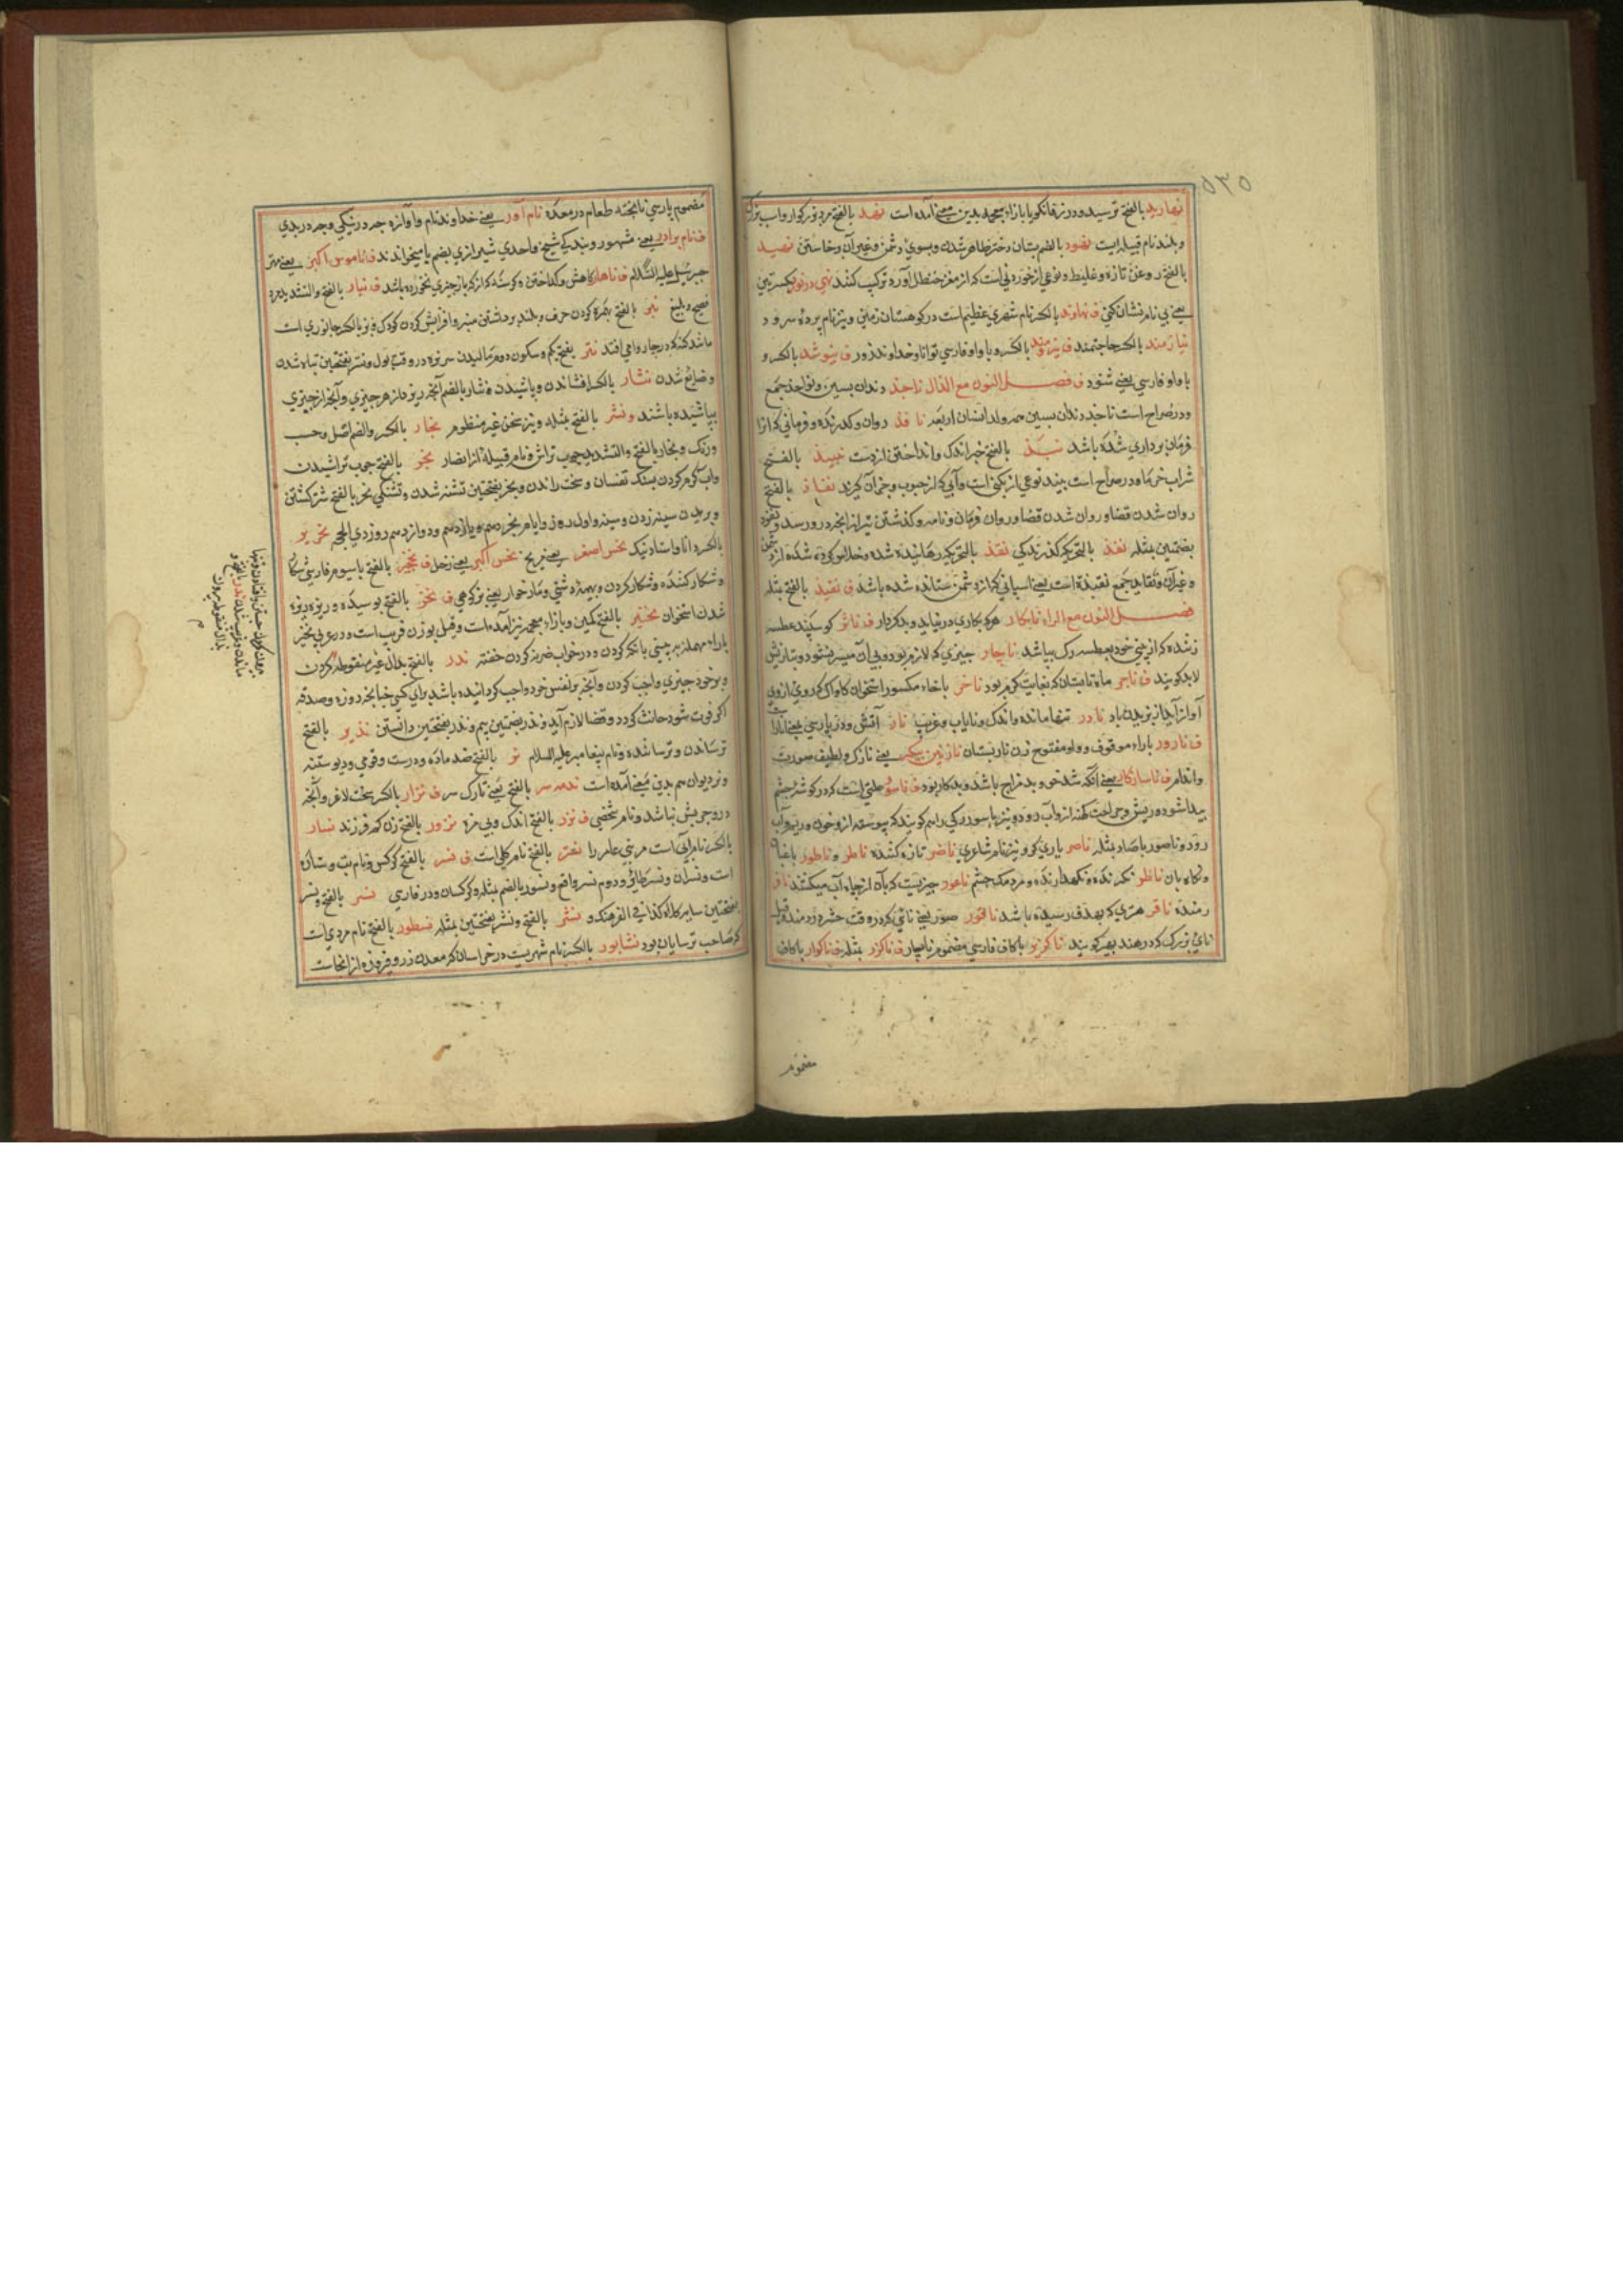 ۵۳۵
نهارید بالفتح ترسید و در زفانکویا بازاء معجمه بدین معنی آمده است نهد بالفتح مرد بزرکوار و اسب بزرک
و بلند نام قبیله ایست نهود بالضم پستان دختر ظاهر شدن و بسوی دشمن و غیر آن و خاستن نهید
بالفتح روغن تازه و غلیظ و نوعی از خوردنی است که از مغز حنظل آورد ترکیب کنند
یعنی بی نام نشان کنی ف نهاوند بالکسر نام شهری عظیم است در کوهستان زمین و نیز نام پرده سرود
نیازمند بالکسر حاجتمند ف نیرومند بالکسر و با واو فارسی توانا و خداوند زور ف نیوشد بالکسر و
با واو فارسی یعنی شنود ف فصل النون مع الذال ناجذ دندان پسین و نواجذ جمع
و در صراح است ناجذ دندان پسین و للانسان اربعه نافذ روان و کذرنده و فرمانی که آنرا
فرمان برداری شده باشد نبذ بالفتح خبر اندک و انداختن از دست نبیذ بالفتح
شراب خرما و در صراح است نبیذ نوعی از بکنی است و آبی که از حبوب و جز آن کیرند نفاذ بالفتح
روان شدن قضا و روان شدن فرمان و نامه و کذشتن تیر از آنچه درو رسد و نفوذ
بضمتین مثله نفذ بالتحریک کذرندکی نقذ بالتحریک رهانیده شده و خلاص کرده شده از دشمن
و غیر آن و نقایذ جمع نقیذة است یعنی اسپانی که از دشمن ستانده شده باشد ف نقیذ بالفتح مثله
فصل النون مع الراء نابکار هر که بکاری درنیاید و بدکردار ف ناثر کوسپند عطسه
زننده که از بینی خود بعطسه رک بپاشد ناچار چیزی که لازم بود و بی آن میسر نشود و بتازیش
لابد کویند ف ناجر ماه تابستان که بغایت کرم بود ناخر باخاء مکسور استخوان کاواک که روی ازوی
آواز آید از وزیدن باد نادر تنها مانده و اندک و نایاب و غریب نار آتش و در پارسی یعنی انار
ف نارور باراء موقوف و واو مفتوح زن نارپستان نازنین پیکر یعنی نازک و لطیف صورت
و اندام ف ناسازکار یعنی آنکه تند خوی و بد مزاج باشد و بدکار بود ف ناسور علتی است که در کوشه چشم
پیدا شود و ریش و جراحت کهنه ازو آب رود و نیز ناسور رکی را هم کویند که پیوسته ازو خون و ریم و آب
رود و ناصور باصاد مثله ناصر یاری کر و نیز نام شاعری ناضر تازه کننده ناطر و ناطور باغبان
و نکاه بان ناظر نکرنده و نکهدارنده و مردمک چشم ناعور چیزیست که بآن از چاه آب میکشند نافر
رمنده ناقر هنری که بهدف رسیده باشد ناقور صور یعنی نائی که در وقت حشر دردمند و قیل
نای بزرک که در هند بهیر کویند ناکزیر باکاف فارسی مضموم ناچار ف ناکزر مثله ف ناکوار باکاف
مضموم
مضموم پارسی ناپخته طعام در معده نام آور یعنی خداوند نام و آوازه چه در نیکی و چه در بدی
ف نام برادر یعنی مشهور و بندکی شیخ واحدی شیرازی بضم با میخواندند ف ناموس اکبر یعنی مهتر
جبرئیل علیه السلام ف ناهار کاهش و کداختن و کرسنه که از دیر باز چیزی نخورده باشد ف نبار بالفتح والتشدید مرد
فصیح و بلیغ نبر بالفتح بهمزه کردن حرف و بلند برداشتن منبر و افزایش کردن کودک ف نبر بالکسر جانوری است
مانند کنه که در چاروا می افتد نتر بفتح یکم و سکون دوم مالیدن سر نره در وقت بول و نتر بفتحتین تباه شدن
و ضائع شدن نثار بالکسر افشاندن و پاشیدن و نثار بالضم آنچه ریزد از هر چیزی و آنچه از چیزی
بپاشیده باشند و نثر بالفتح مثله و نیز سخن غیر منظوم نجار بالکسر والضم اصل و حسب
ورنک و نجار بالفتح والتشدید چوب تراش و نام قبیله از انصار نجر بالفتح چوب تراشیدن
و آب کرم کردن بسنک تفسان و سخت راندن و نجر بفتحتین تشنه شدن و تشنکی نحر بالفتح شتر کشتن
و بریدن سینه زدن و سینه و اول روز و ایام نحر دهم و یازدهم و دوازدهم روز ذی الحجه نحریر
بالکسر دانا و استاد نیک نحس اصغر یعنی مریخ نحس اکبر یعنی زحل ف نخجیر بالفتح باسیوم فارسی شکار
و شکار کننده و شکار کردن و بهیمه دشتی و مارخوار یعنی بز کوهی ف نخر بالفتح بوسیده و ریزه ریزه
شدن استخوان نخیر بالفتح کمین و بازاء معجمه نیز آمده است و قیل بوزن قریب است و در عربی نخیر
باراء مهمله به بینی بانک کردن و در خواب خرخر کردن خفته ندر بالفتح بدال غیر منقوطه کردن
و بر خود چیزی واجب کردن و آنچه بر نفس خود واجب کردانیده باشد برای کسی چنانچه روزه و صدقه
اکر فوت شود حانث کردد و قضا لازم آید و نذر بضمتین بیم و نذر بفتحتین دانستن نذیر بالفتح
ترساندن و ترسانده و نام پیغامبر علیه السلام نر بالفتح ضد ماده و درست و قومی و دیو ستنبه
و نر دیوان هم بدین معنی آمده است بالفتح یعنی تارک سر ف نزار بالکسر سخت لاغر و آنچه
درو چربش نباشد و نام شخصی ف نزر بالفتح اندک و بی مزه نزور بالفتح زن کم فرزند نسار
بالکسر نام آبی است مر بنی عامر را بالفتح نام کلی است ف نسر بالفتح کرکس و نام بت و ستاره
است و نسران و نسر طائر و دوم نسر واقع و نسور بالضم مثله و کرکسان و در فارسی نسر بالفتح و نسر
بفتحتین سایه کلاه کذا فی الفرهنک و نشر بالفتح و نشر بفتحتین مثله نسطور بالفتح نام مردی است
که صاحب ترسایان بود نشابور بالکسر نام شهریست در خراسان که معدن زر و فیروزه از آنجاست